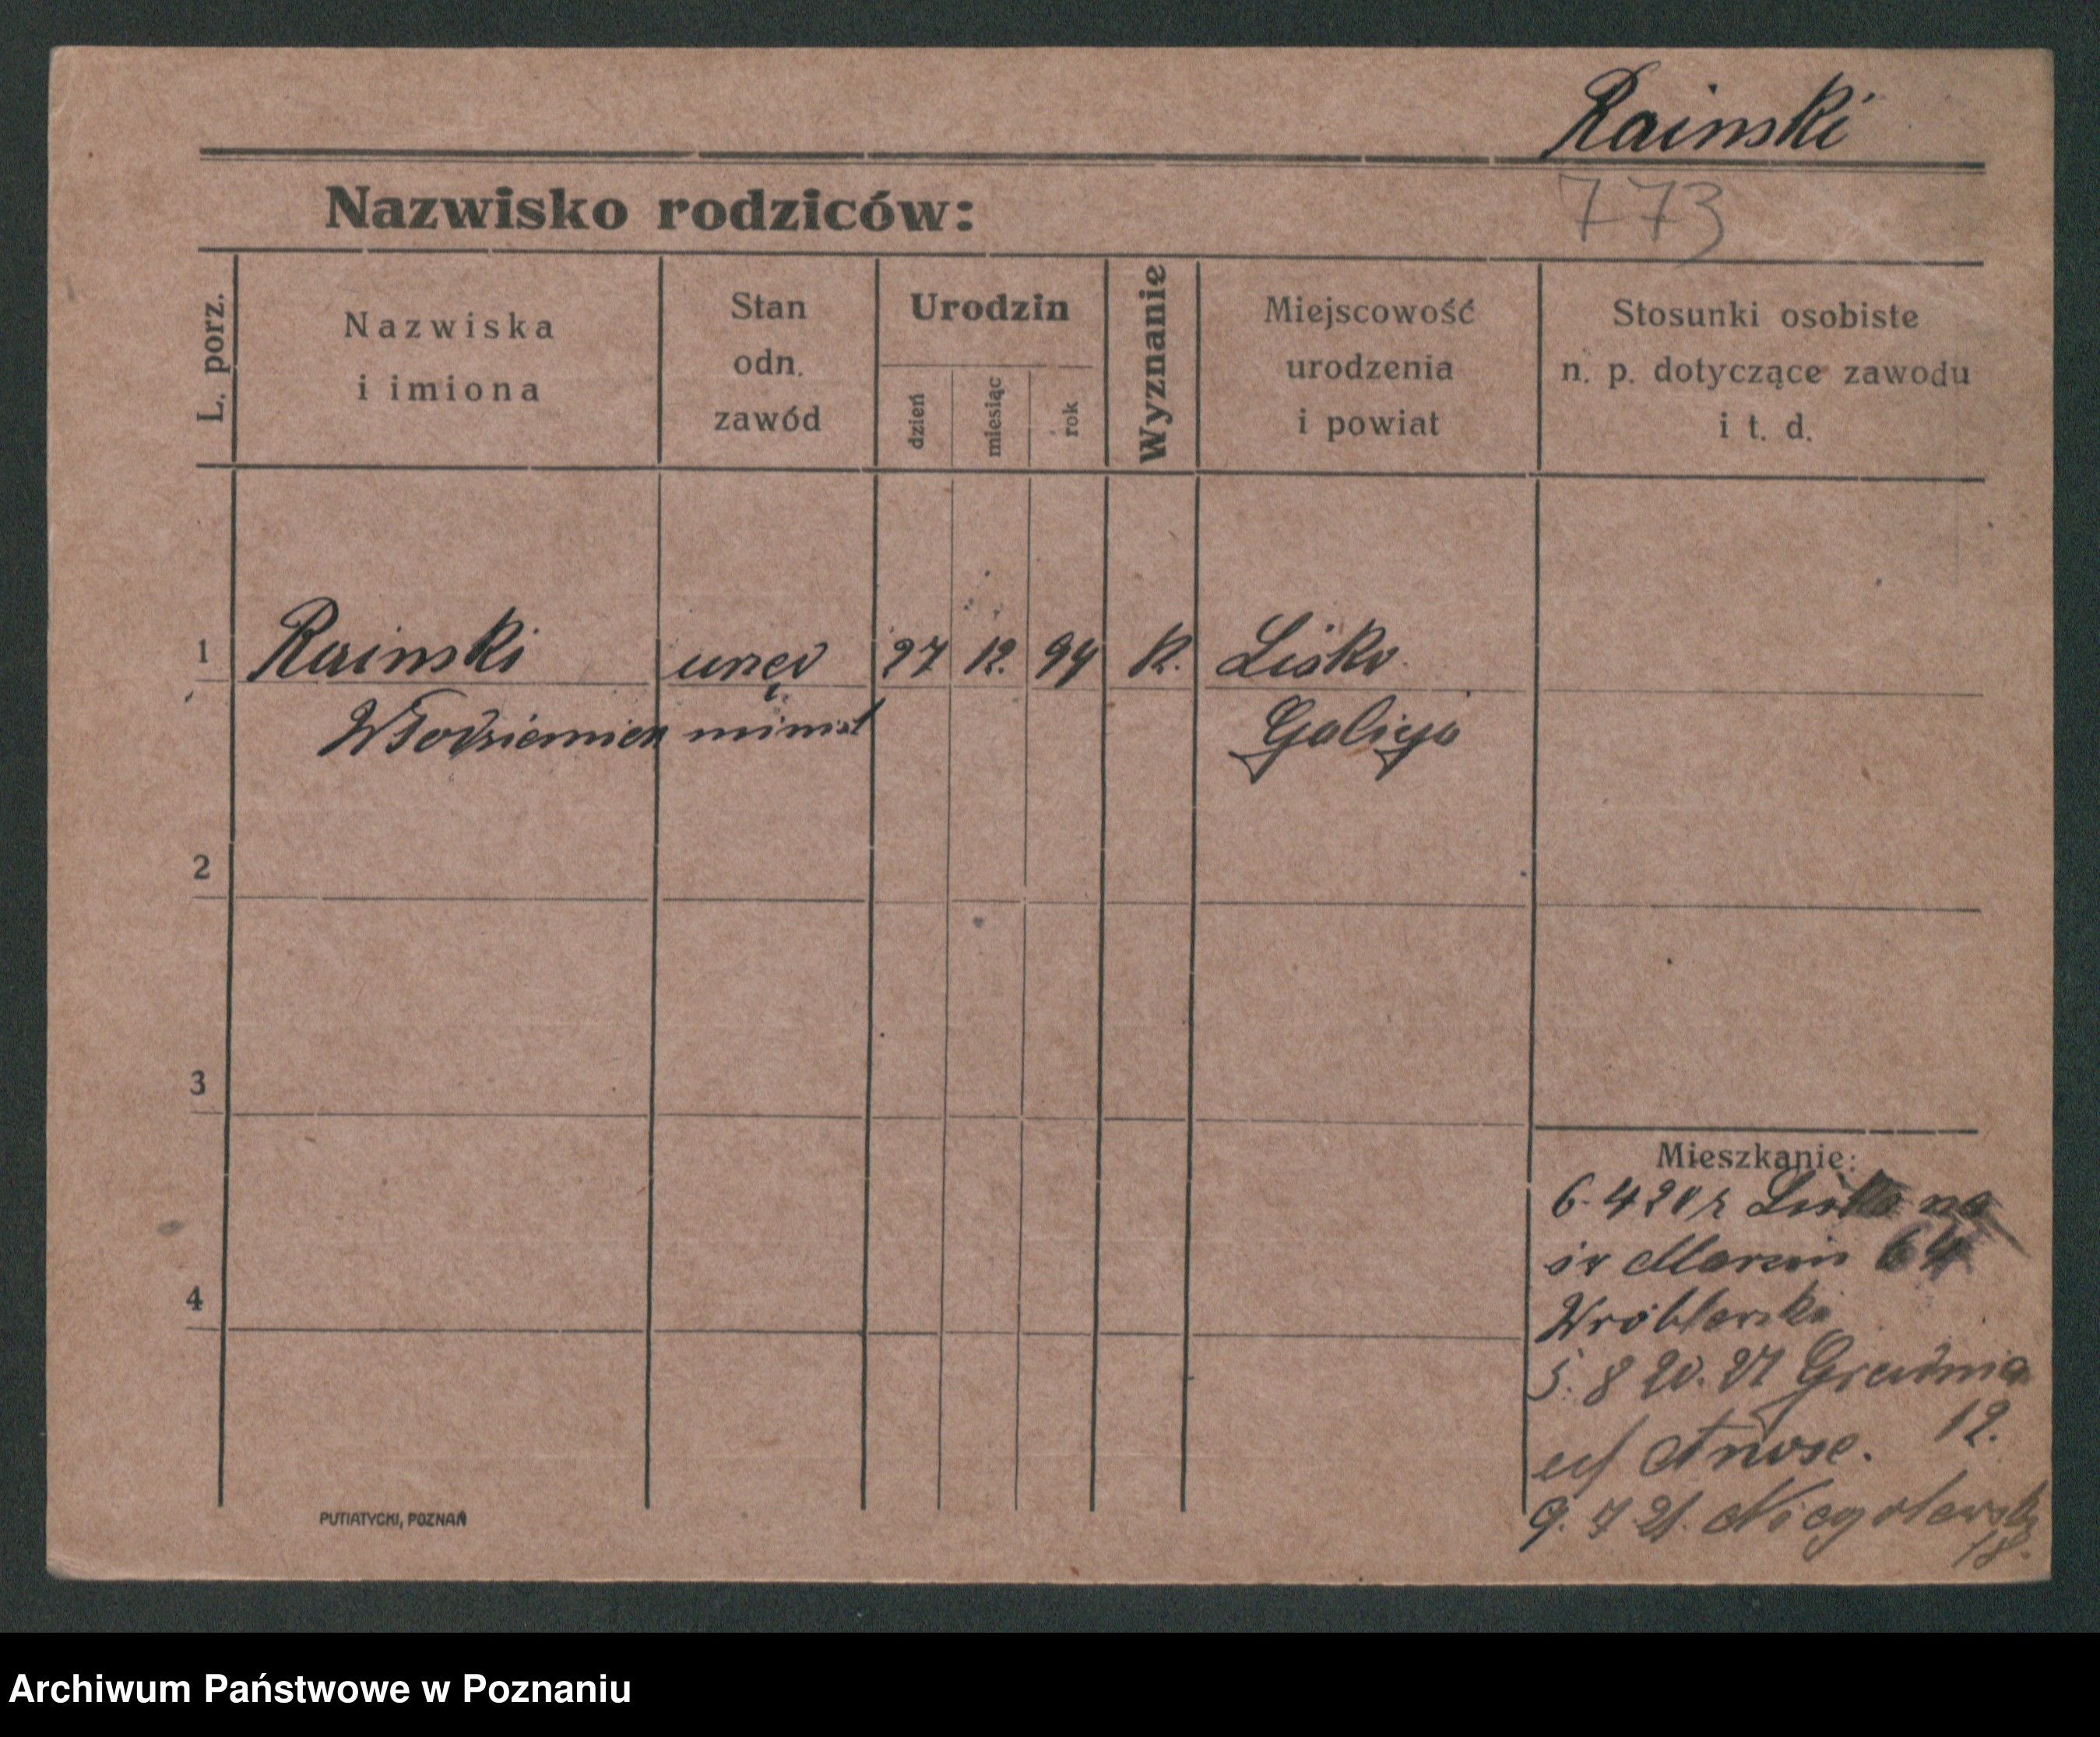 Rainski
Nazwisko rodziców:
773
L. porz.
Nazwiska
i imiona
Stan
odn.
zawód
Urodzin
dzień
miesiąc
rok
Wyznanie
Miejscowość
urodzenia
i powiat
Stosunki osobiste
n. p. dotyczące zawodu
i t. d.
1 Rainski 27 12. 94 K. Lisko
Włodzimierz minist Galicja
2
3
4
Mieszkanie:
6. 4 20 r Lisko na
św Marcin 64
5. 8 20. 27 Grudnia
12.
9. 7 21. Niegolewsk
18.
PUTIATYCKI, POZNAŃ
Archiwum Państwowe w Poznaniu